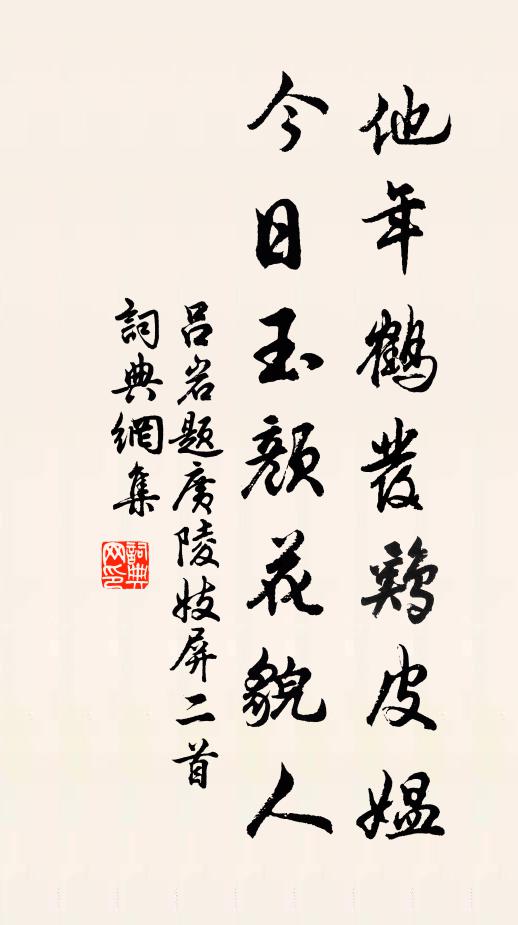 他年鶴發鷄皮媼
今日玉顔花貌人
呂岩題廣陵妓屏二首
詞典網集
詞典网印